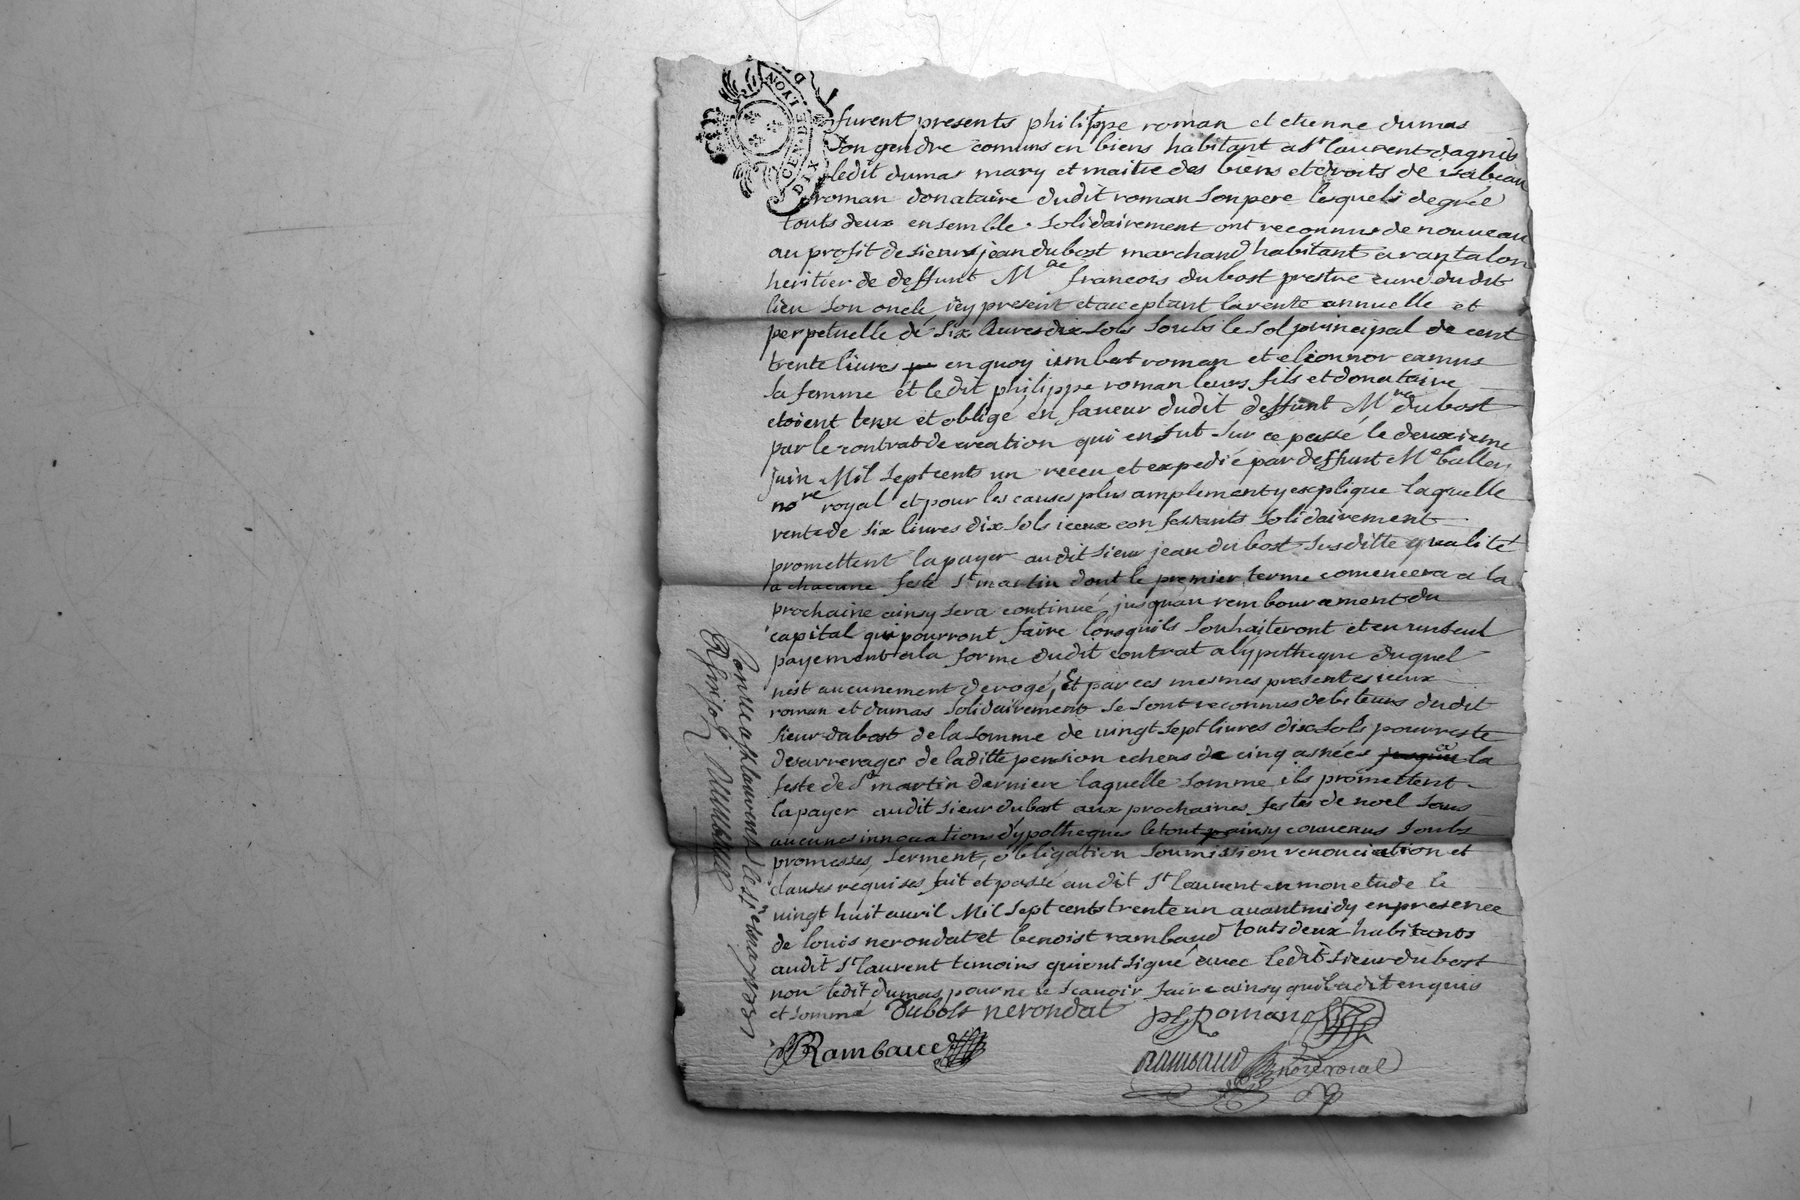 GEN DE LYON
DIX
furent presents philippe roman et etienne dumas
son gendre comuns en biens habitant a st laurent dagnis
ledit dumas mary et maitre des biens et droits de isabeau
roman donataire dudit roman son pere lesquels de gré
touts deux ensemble solidairement ont reconnus de nouveau
au profit de sieurs jean dubost marchand habitant a rantalon
heritier de deffunt Mre francois dubost prestre curé dudit
lieu son oncle icy present et acceptant la rente annuelle et
perpetuelle de six livres dix sols soubs le sol principal de cent
trente livres en quoy imbert roman et eleonnor camus
sa femme et ledit philippe roman leurs fils et donataire
etoient tenu et obligé en faveur dudit deffunt Mre dubost
par le contrat de creation qui en fut sur ce passé le deuxieme
juin Mil sept cents un receu et expedié par deffunt Me
nore royal et pour les causes plus amplement y explique laquelle
rente de six livres dix sols iceux confessants solidairement
promettent la payer audit sieur jean dubost susditte qualité
a chacune feste st martin dont le premier terme comencera a la
prochaine ainsy sera continué jusquau rembourcement du
capital qui pourront faire lorsquils souhaiteront et en un seul
payement a la forme dudit contrat a lypotheque duquel
nest aucunement derogé, Et par ces mesmes presentes iceux
roman et dumas solidairement se sont reconnus debiteurs dudit
sieur dubost de la somme de vingt sept livres dix sols pour reste
des arrerages de laditte pension echeus de cinq années a la
feste de st martin derniere laquelle somme ils promettent
la payer audit sieur dubost aux prochaines festes de noel sans
aucunes innovations dypotheques le tout ainsy convenus soubs
promesses, serment, obligation soumission renonciation et
clauses requises fait et passé audit st laurent en mon etude le
vingt huit avril Mil sept cents trente un avant midy en presence
de louis nerondat et benoist rambaud touts deux habitants
audit st laurent temoins qui ont signé avec ledit sieur dubost
non ledit dumas pour ne le scavoir faire ainsy quil a dit enquis
et sommé Dubost nerondat
ph Roman
Rambaud
rambaud nore roial